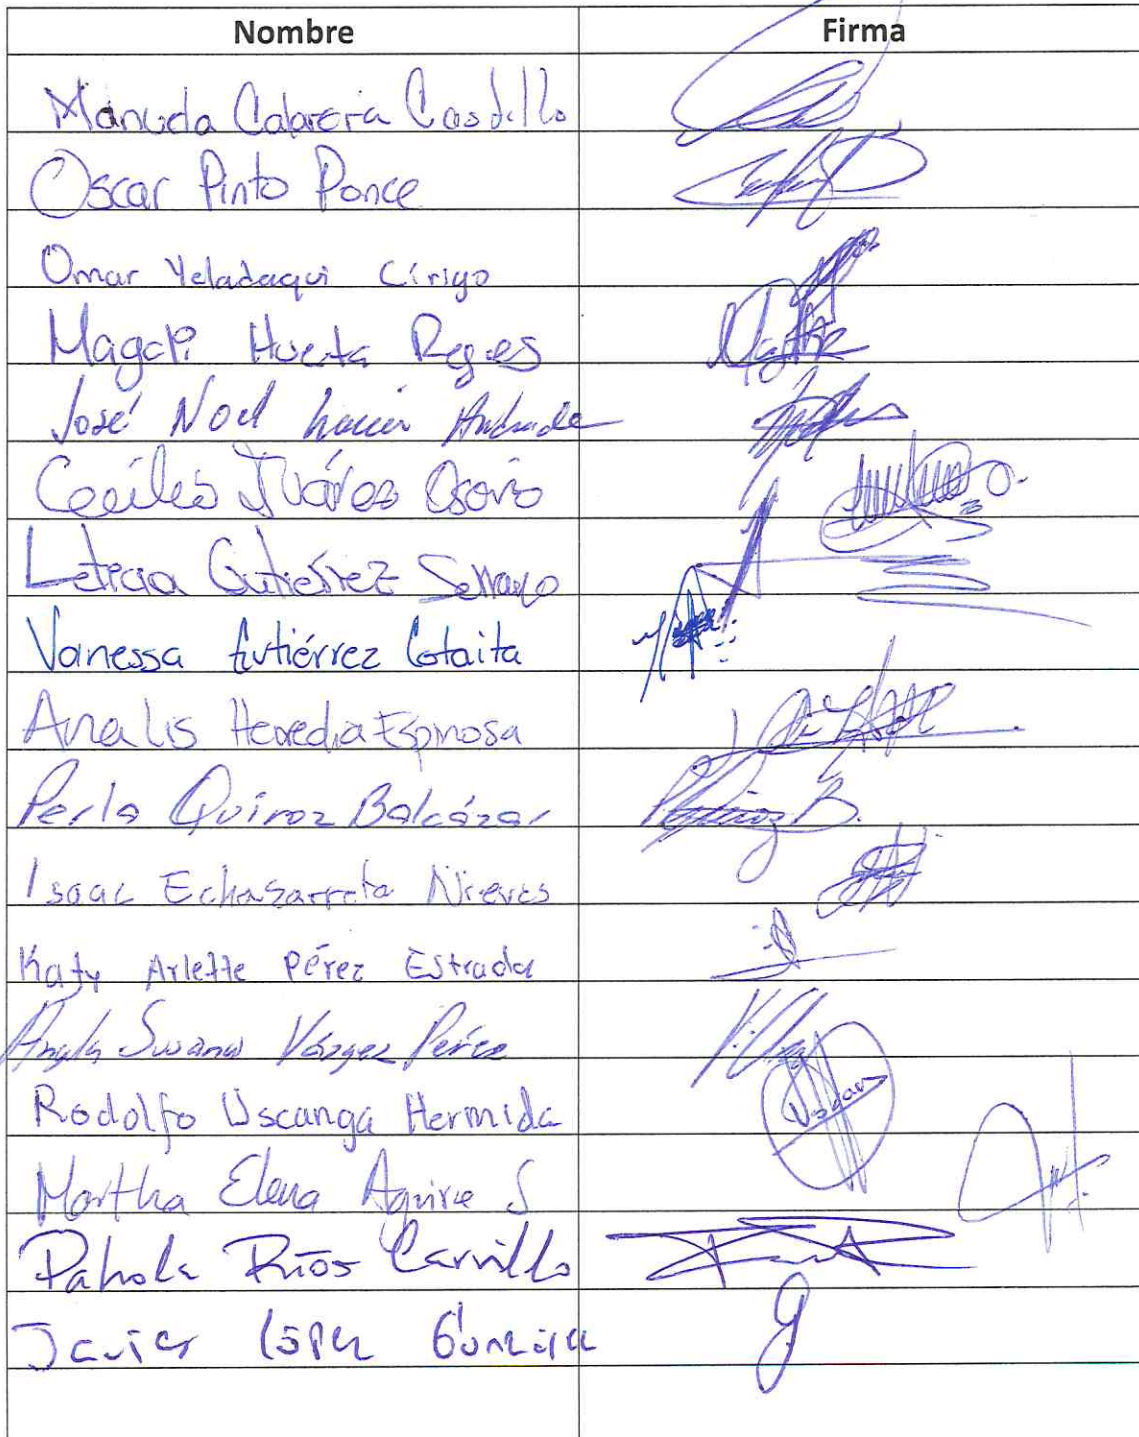 Nombre Firma
Manuela Cabrera Casdillo
Oscar Pinto Ponce
Omar Yeladaqui Cirigo
Magali Huerta Reyes
José Noel Andrade
Cecilia Juárez Osorio
Leticia Gutiérrez Serrano
Vanessa Gutiérrez Cotaita
Analis Heredia Espinosa
Perla Quiroz Balcázar
Isaac Echazarreta Nieves
Katy Arlette Pérez Estrada
Angela Susana Vázquez Pérez
Rodolfo Uscanga Hermida
Martha Elena Aguirre S
Pahola Ríos Carrillo
Javier López González